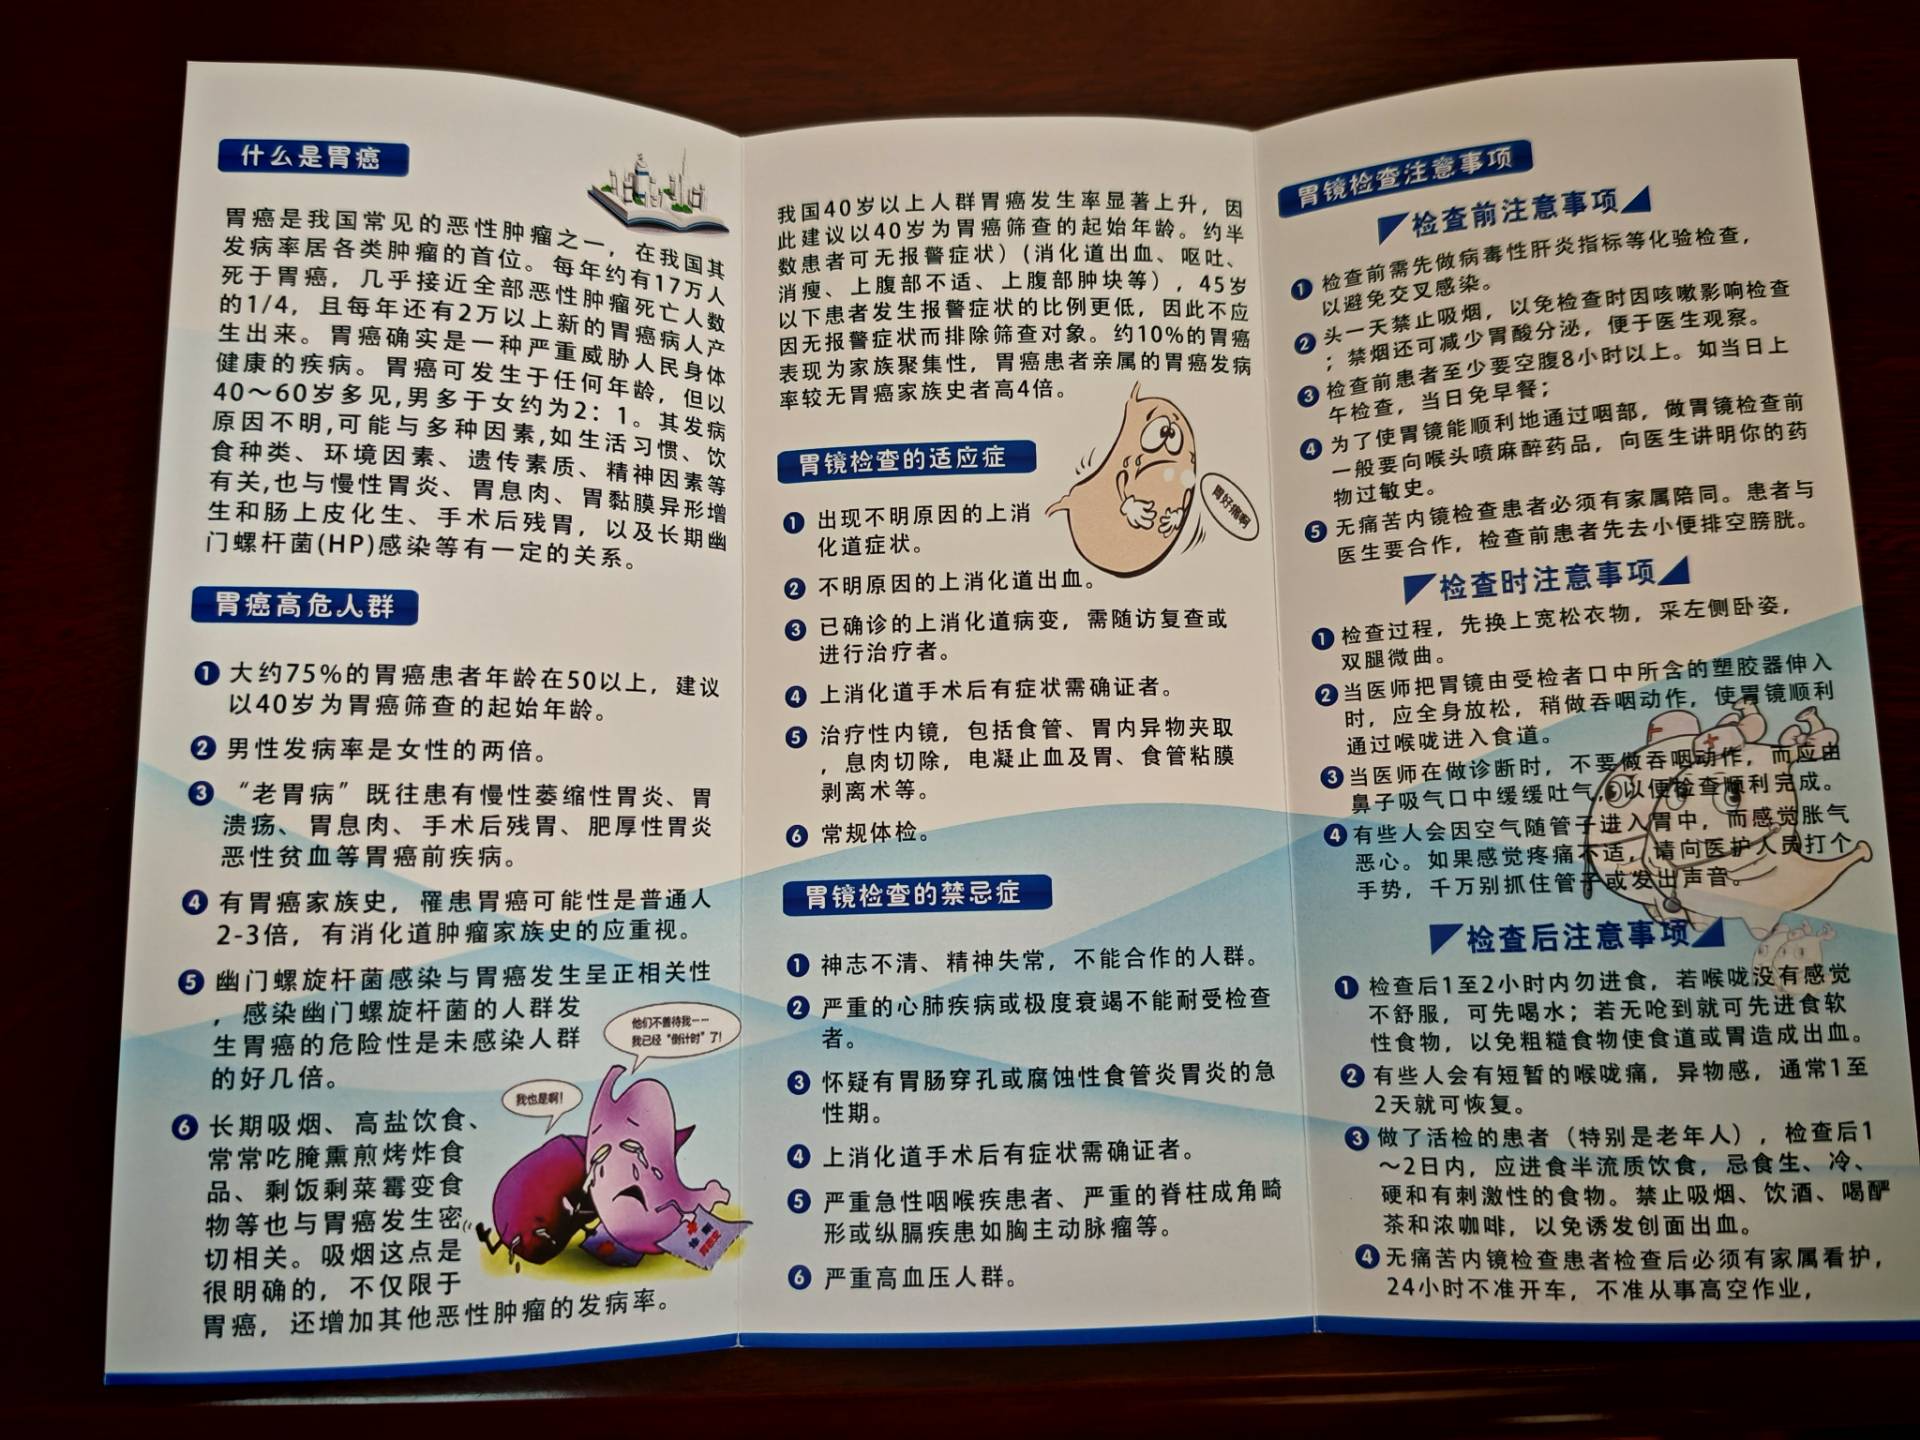 什么是胃癌
胃癌是我国常见的恶性肿瘤之一，在我国其
发病率居各类肿瘤的首位。每年约有17万人
死于胃癌，几乎接近全部恶性肿瘤死亡人数
的1/4，且每年还有2万以上新的胃癌病人产
生出来。胃癌确实是一种严重威胁人民身体
健康的疾病。胃癌可发生于任何年龄，但以
40～60岁多见,男多于女约为2：1。其发病
原因不明,可能与多种因素,如生活习惯、饮
食种类、环境因素、遗传素质、精神因素等
有关,也与慢性胃炎、胃息肉、胃黏膜异形增
生和肠上皮化生、手术后残胃，以及长期幽
门螺杆菌(HP)感染等有一定的关系。
胃癌高危人群
1 大约75%的胃癌患者年龄在50以上，建议
以40岁为胃癌筛查的起始年龄。
2 男性发病率是女性的两倍。
3 “老胃病”既往患有慢性萎缩性胃炎、胃
溃疡、胃息肉、手术后残胃、肥厚性胃炎
恶性贫血等胃癌前疾病。
4 有胃癌家族史，罹患胃癌可能性是普通人
2-3倍，有消化道肿瘤家族史的应重视。
5 幽门螺旋杆菌感染与胃癌发生呈正相关性
，感染幽门螺旋杆菌的人群发
生胃癌的危险性是未感染人群
的好几倍。
6 长期吸烟、高盐饮食、
常常吃腌熏煎烤炸食
品、剩饭剩菜霉变食
物等也与胃癌发生密
切相关。吸烟这点是
很明确的，不仅限于
胃癌，还增加其他恶性肿瘤的发病率。
他们不善待我……
我已经“倒计时”了!
我也是啊!
我国40岁以上人群胃癌发生率显著上升，因
此建议以40岁为胃癌筛查的起始年龄。约半
数患者可无报警症状）(消化道出血、呕吐、
消瘦、上腹部不适、上腹部肿块等），45岁
以下患者发生报警症状的比例更低，因此不应
因无报警症状而排除筛查对象。约10%的胃癌
表现为家族聚集性，胃癌患者亲属的胃癌发病
率较无胃癌家族史者高4倍。
胃镜检查的适应症
胃好痛啊
1 出现不明原因的上消
化道症状。
2 不明原因的上消化道出血。
3 已确诊的上消化道病变，需随访复查或
进行治疗者。
4 上消化道手术后有症状需确证者。
5 治疗性内镜，包括食管、胃内异物夹取
，息肉切除，电凝止血及胃、食管粘膜
剥离术等。
6 常规体检。
胃镜检查的禁忌症
1 神志不清、精神失常，不能合作的人群。
2 严重的心肺疾病或极度衰竭不能耐受检查
者。
3 怀疑有胃肠穿孔或腐蚀性食管炎胃炎的急
性期。
4 上消化道手术后有症状需确证者。
5 严重急性咽喉疾患者、严重的脊柱成角畸
形或纵膈疾患如胸主动脉瘤等。
6 严重高血压人群。
胃镜检查注意事项
检查前注意事项
1 检查前需先做病毒性肝炎指标等化验检查，
以避免交叉感染。
2 头一天禁止吸烟，以免检查时因咳嗽影响检查
；禁烟还可减少胃酸分泌，便于医生观察。
3 检查前患者至少要空腹8小时以上。如当日上
午检查，当日免早餐；
4 为了使胃镜能顺利地通过咽部，做胃镜检查前
一般要向喉头喷麻醉药品，向医生讲明你的药
物过敏史。
5 无痛苦内镜检查患者必须有家属陪同。患者与
医生要合作，检查前患者先去小便排空膀胱。
检查时注意事项
1 检查过程，先换上宽松衣物，采左侧卧姿，
双腿微曲。
2 当医师把胃镜由受检者口中所含的塑胶器伸入
时，应全身放松，稍做吞咽动作，使胃镜顺利
通过喉咙进入食道。
3 当医师在做诊断时，不要做吞咽动作，而应由
鼻子吸气口中缓缓吐气，以便检查顺利完成。
4 有些人会因空气随管子进入胃中，而感觉胀气
恶心。如果感觉疼痛不适，请向医护人员打个
手势，千万别抓住管子或发出声音。
检查后注意事项
1 检查后1至2小时内勿进食，若喉咙没有感觉
不舒服，可先喝水；若无呛到就可先进食软
性食物，以免粗糙食物使食道或胃造成出血。
2 有些人会有短暂的喉咙痛，异物感，通常1至
2天就可恢复。
3 做了活检的患者（特别是老年人），检查后1
～2日内，应进食半流质饮食，忌食生、冷、
硬和有刺激性的食物。禁止吸烟、饮酒、喝酽
茶和浓咖啡，以免诱发创面出血。
4 无痛苦内镜检查患者检查后必须有家属看护，
24小时不准开车，不准从事高空作业，